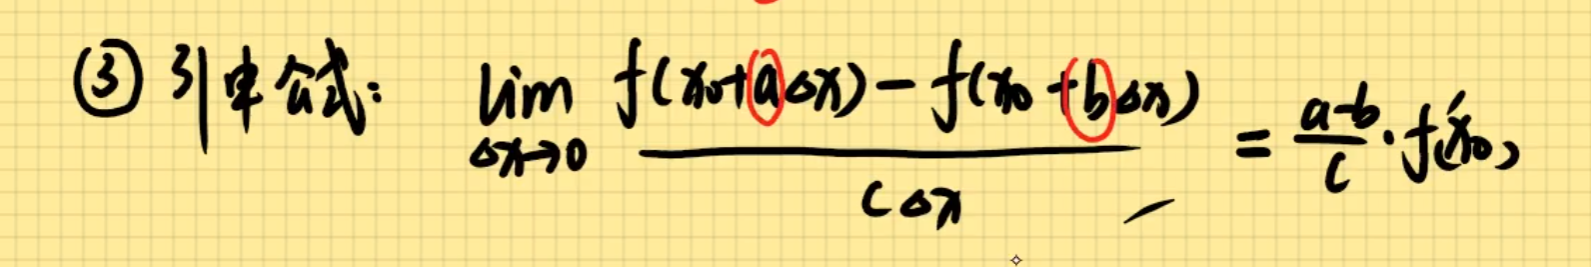 ③ 引申公式: lim Δx→0 f(x₀+aΔx)-f(x₀+bΔx) / cΔx = a-b / c · f'(x₀)